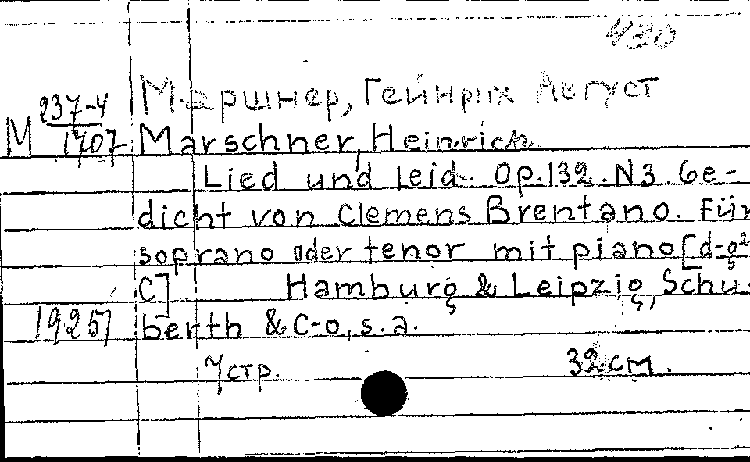 430
Маршнер, Гейнрих Август
M 237-4/1707
Marschner, Heinrich
Lied und leid. Op.132. N3. Ge-
dicht von Clemens Brentano. Für
soprano oder tenor mit piano [d-g²
C] Hamburg & Leipzig, Schu-
19257 berth & C-o, s.a.
7 стр. 32 см.